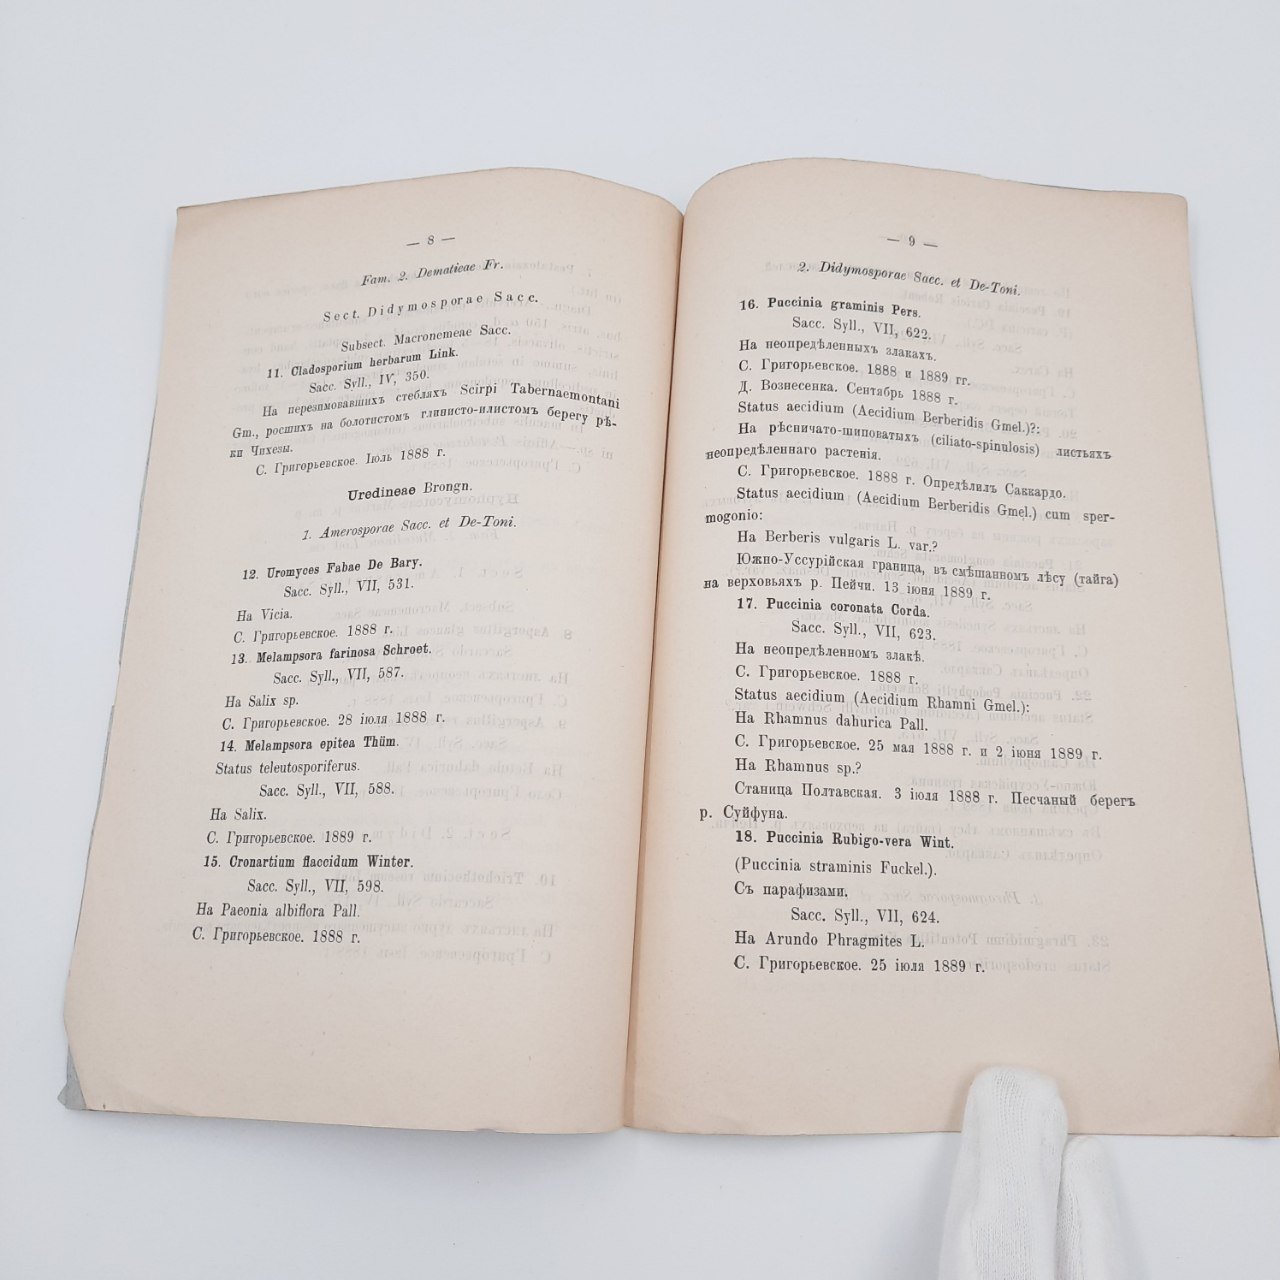 — 8 —
Fam. 2. Dematieae Fr.
Sect. Didymosporae Sacc.
Subsect. Macronemeae Sacc.
11. Cladosporium herbarum Link.
Sacc. Syll., IV, 350.
На перезимовавшихъ стебляхъ Scirpi Tabernaemontani
Gm., росшихъ на болотистомъ глинисто-илистомъ берегу рѣ-
ки Чихезы.
С. Григорьевское. Іюль 1888 г.
Uredineae Brongn.
1. Amerosporae Sacc. et De-Toni.
12. Uromyces Fabae De Bary.
Sacc. Syll., VII, 531.
На Vicia.
С. Григорьевское. 1888 г.
13. Melampsora farinosa Schroet.
Sacc. Syll., VII, 587.
На Salix sp.
С. Григорьевское. 28 іюля 1888 г.
14. Melampsora epitea Thüm.
Status teleutosporiferus.
Sacc. Syll., VII, 588.
На Salix.
С. Григорьевское. 1889 г.
15. Cronartium flaccidum Winter.
Sacc. Syll., VII, 598.
На Paeonia albiflora Pall.
С. Григорьевское. 1888 г.
— 9 —
2. Didymosporae Sacc. et De-Toni.
16. Puccinia graminis Pers.
Sacc. Syll., VII, 622.
На неопредѣленныхъ злакахъ.
С. Григорьевское. 1888 и 1889 гг.
Д. Вознесенка. Сентябрь 1888 г.
Status aecidium (Aecidium Berberidis Gmel.)?:
На рѣсничато-шиповатыхъ (ciliato-spinulosis) листьяхъ
неопредѣленнаго растенія.
С. Григорьевское. 1888 г. Опредѣлилъ Саккардо.
Status aecidium (Aecidium Berberidis Gmel.) cum sper-
mogonio:
На Berberis vulgaris L. var.?
Южно-Уссурійская граница, въ смѣшанномъ лѣсу (тайга)
на верховьяхъ р. Пейчи. 13 іюня 1889 г.
17. Puccinia coronata Corda.
Sacc. Syll., VII, 623.
На неопредѣленномъ злакѣ.
С. Григорьевское. 1888 г.
Status aecidium (Aecidium Rhamni Gmel.):
На Rhamnus dahurica Pall.
С. Григорьевское. 25 мая 1888 г. и 2 іюня 1889 г.
На Rhamnus sp.?
Станица Полтавская. 3 іюля 1888 г. Песчаный берегъ
р. Суйфуна.
18. Puccinia Rubigo-vera Wint.
(Puccinia straminis Fuckel.).
Съ парафизами.
Sacc. Syll., VII, 624.
На Arundo Phragmites L.
С. Григорьевское. 25 іюля 1889 г.